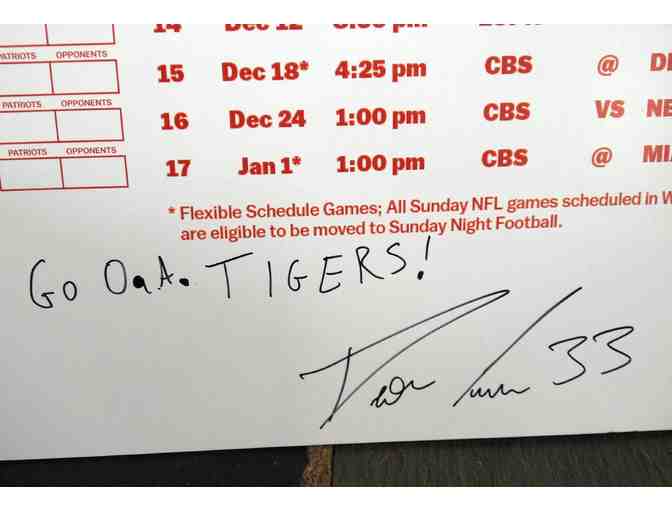 14 Dec 12
PATRIOTS OPPONENTS
15 Dec 18* 4:25 pm CBS @
PATRIOTS OPPONENTS
16 Dec 24 1:00 pm CBS VS
PATRIOTS OPPONENTS
17 Jan 1* 1:00 pm CBS @ MI
* Flexible Schedule Games; All Sunday NFL games scheduled in
are eligible to be moved to Sunday Night Football.
Go O.A. TIGERS!
33